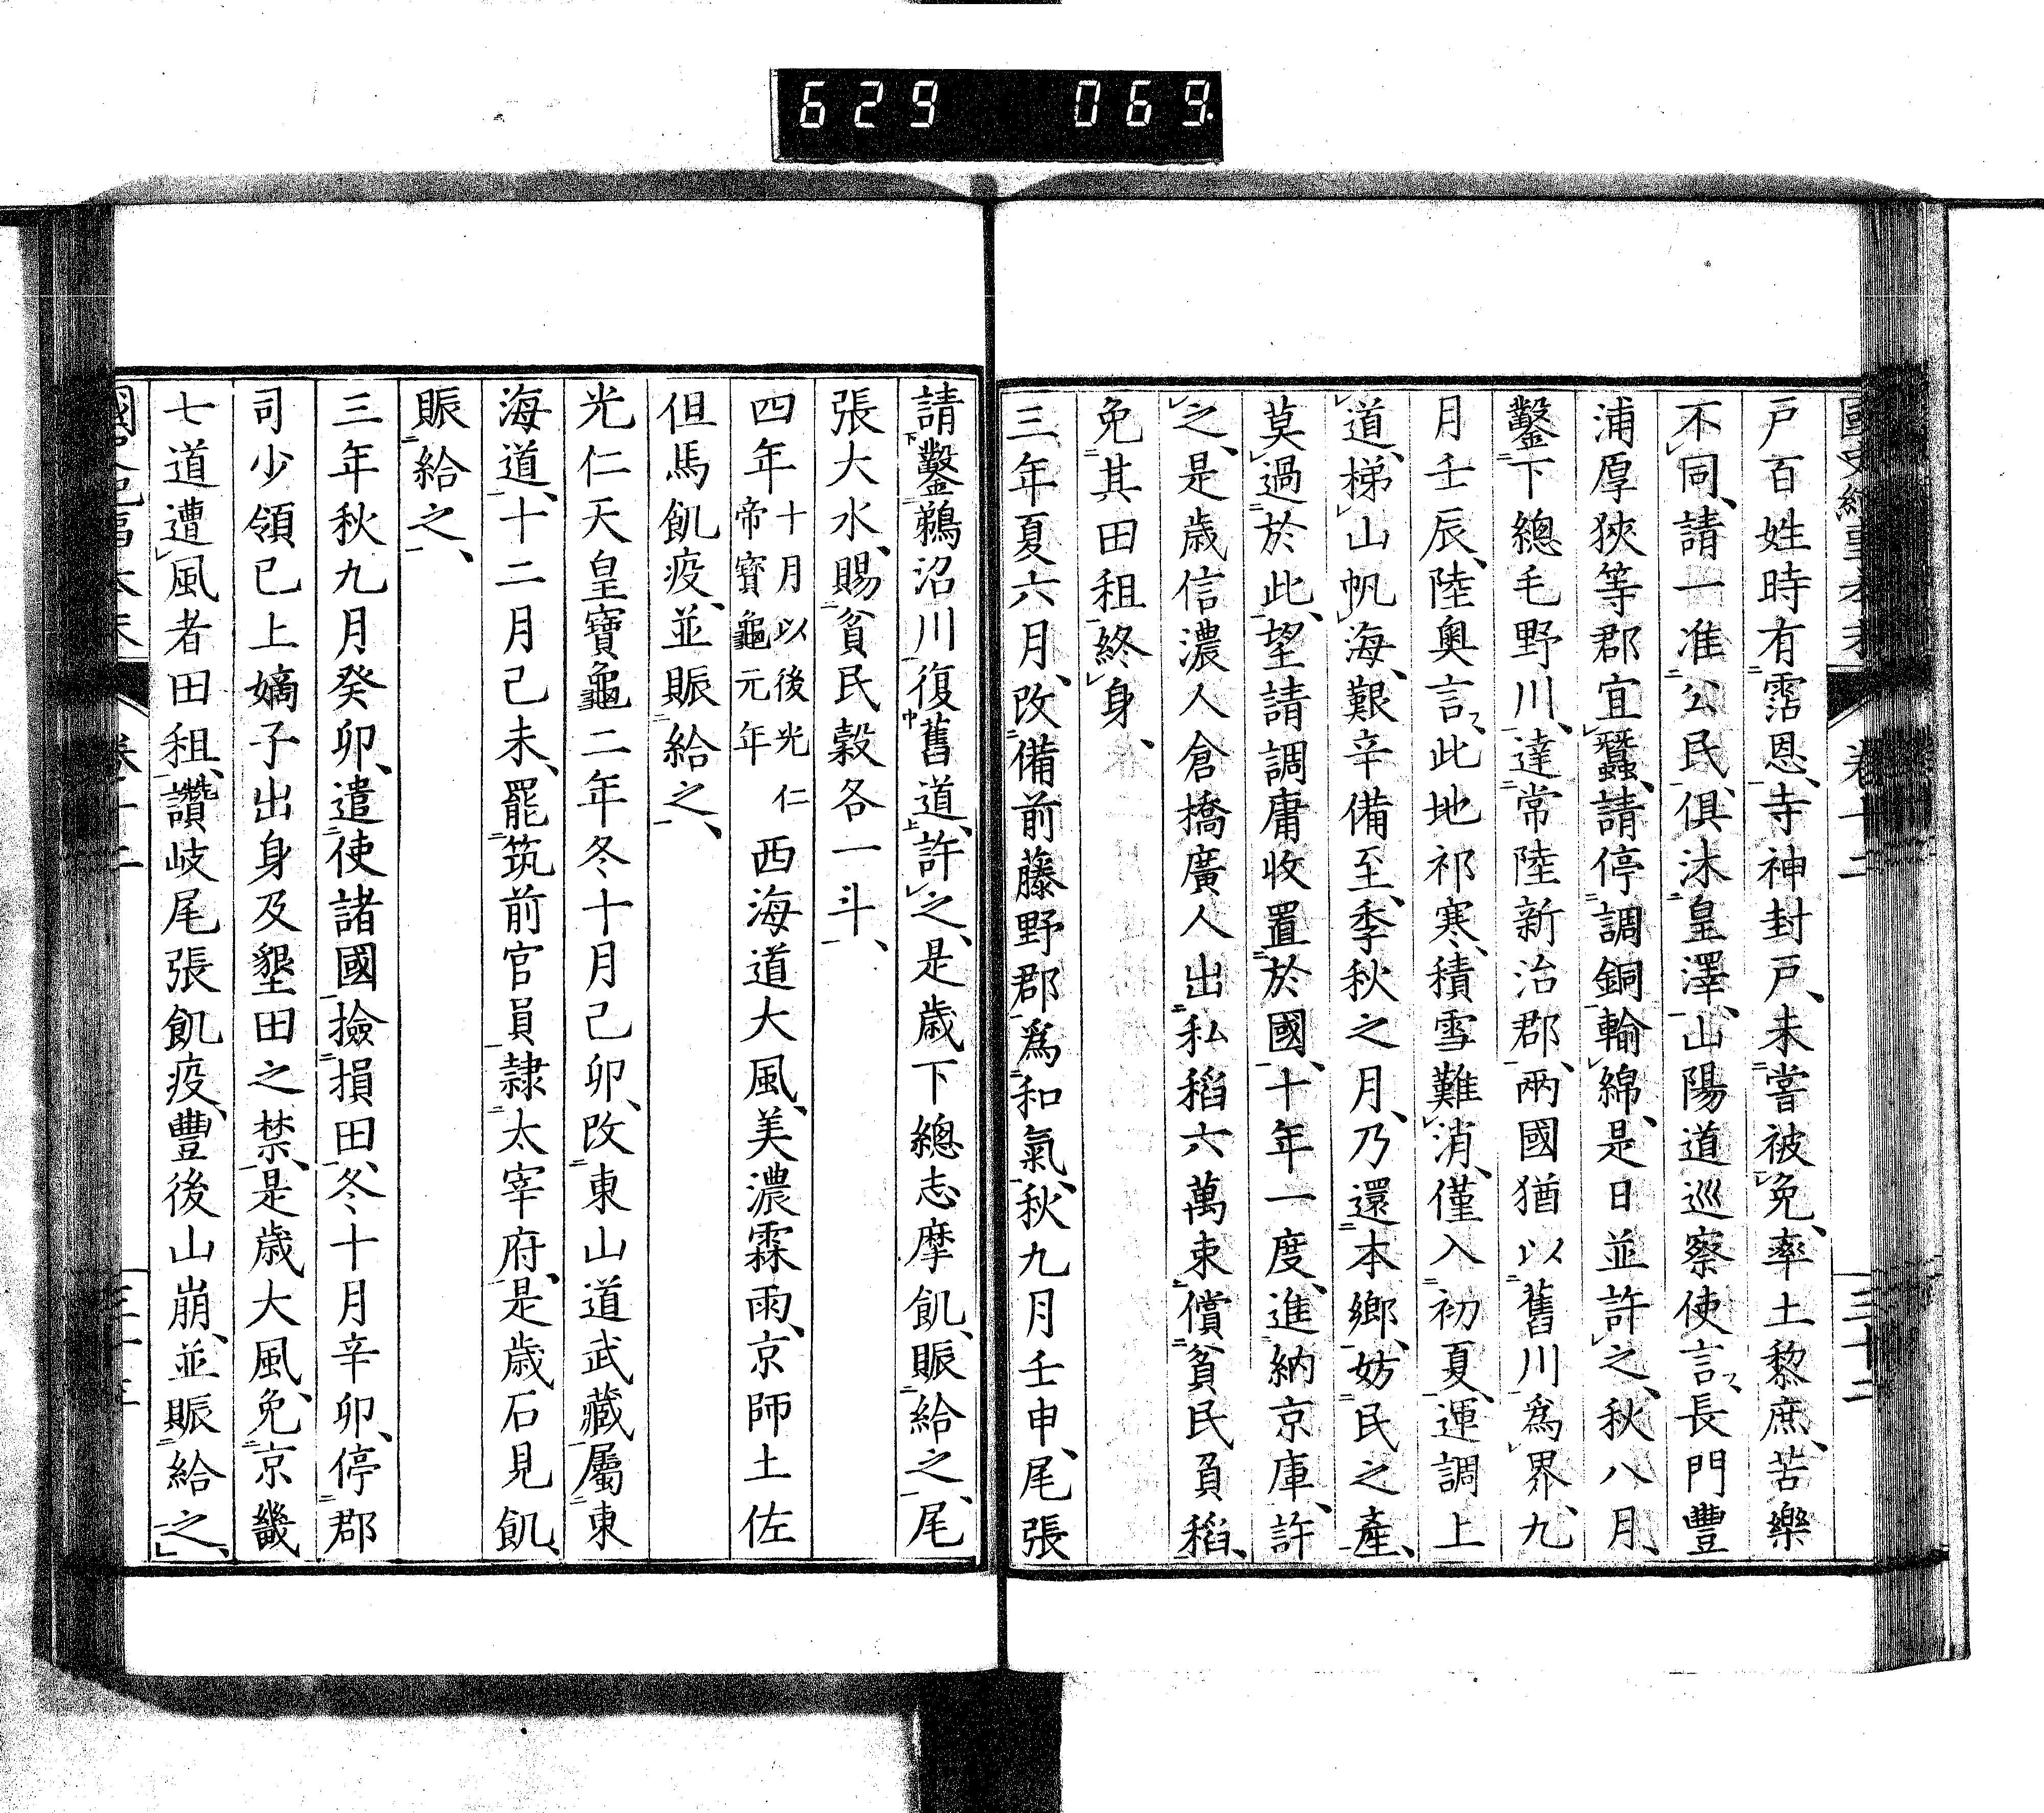 629 069.
戸百姓時有霑恩、寺神封戸、未嘗被免、率土黎庶、苦樂
不同、請一准公民、俱沐皇澤、山陽道巡察使言、長門豐
浦厚狹等郡宜蠶、請停調銅輸綿、是日並許之、秋八月、
鑿下總毛野川、達常陸新治郡、兩國猶以舊川爲界、九
月壬辰、陸奧言、此地祁寒、積雪難消、僅入初夏、運調上
道、梯山帆海、艱辛備至、季秋之月、乃還本鄉、妨民之產、
莫過於此、望請調庸收置於國、十年一度、進納京庫、許
之、是歲信濃人倉橋廣人出私稻六萬束、償貧民負稻、
免其田租、終身、
三年夏六月、改備前藤野郡爲和氣、秋九月壬申、尾張
請鑿鵜沼川復舊道、許之、是歲下總志摩飢、賑給之、尾
張大水、賜貧民穀各一斗、
四年十月以後光仁帝寶龜元年西海道大風、美濃霖雨、京師土佐
但馬飢疫、並賑給之、
光仁天皇寶龜二年冬十月己卯、改東山道武藏屬東
海道、十二月己未、罷筑前官員隸太宰府、是歲石見飢、
賑給之、
三年秋九月癸卯、遣使諸國撿損田、冬十月辛卯、停郡
司少領已上嫡子出身及墾田之禁、是歲大風、免京畿
七道遭風者田租、讚岐尾張飢疫、豐後山崩、並賑給之、